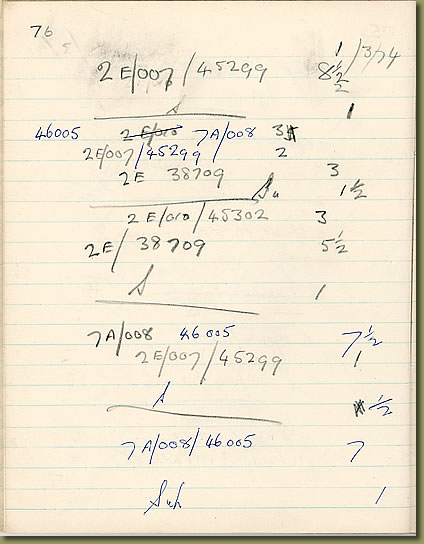 76
1/3/74
2E/007/45299 8½
S 1
46005 2E/010 7A/008 3
2E/007/45299 2
2E 38709 3
Su 1½
2E/010/45302 3
2E/38709 5½
S 1
7A/008 46005 7½
2E/007/45299 1
S ½
7A/008/46005 7
Sub 1